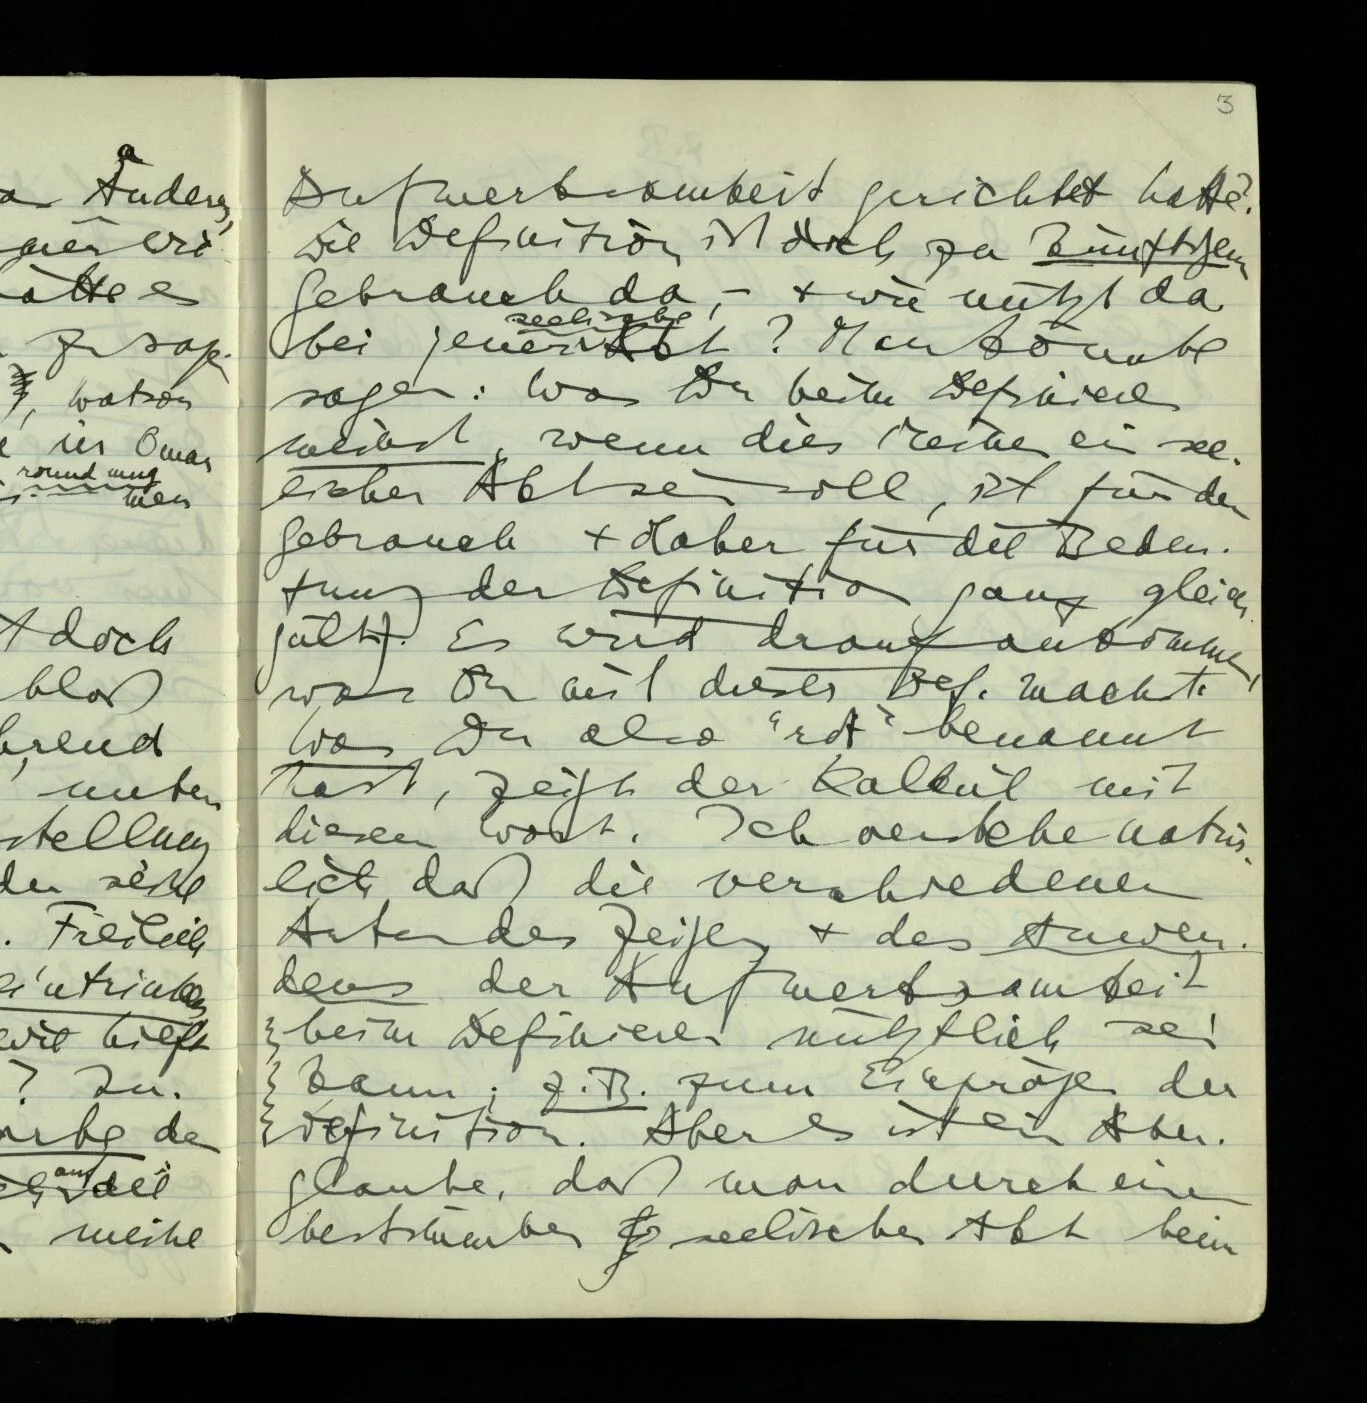 a
Anderes,
hätte es
zu sagen
Watson
in Omar
round
man
doch
bloß
unten
stellung
der seine
. Freilich
eintrinken
wie hilft
? In-
der
auf
die
meine
3
Aufmerksamkeit gerichtet hatte?
Die Definition ist doch zu künftigem
Gebrauch da, – + wie nützt da
seelische
bei jener Akt? Man könnte
sagen: Was Du beim Definieren
meinst, wenn dies Meinen ein see-
lischer Akt sein soll, ist für den
Gebrauch + daher für die Bedeu-
tung der Definition ganz gleich-
gültig. Es wird drauf ankommen,
was Du mit dieser Def. machst.
Was Du also "rot" benannt
hast, zeigt der Kalkül mit
diesem Wort. Ich verstehe natür-
lich daß die verschiedenen
Arten des Zeigens + des Anwen-
dens der Aufmerksamkeit
beim Definieren nützlich sein
kann; z.B. zum Einprägen der
Definition. Aber es ist ein Aber-
glaube, daß man durch einen
bestimmten seelischen Akt beim